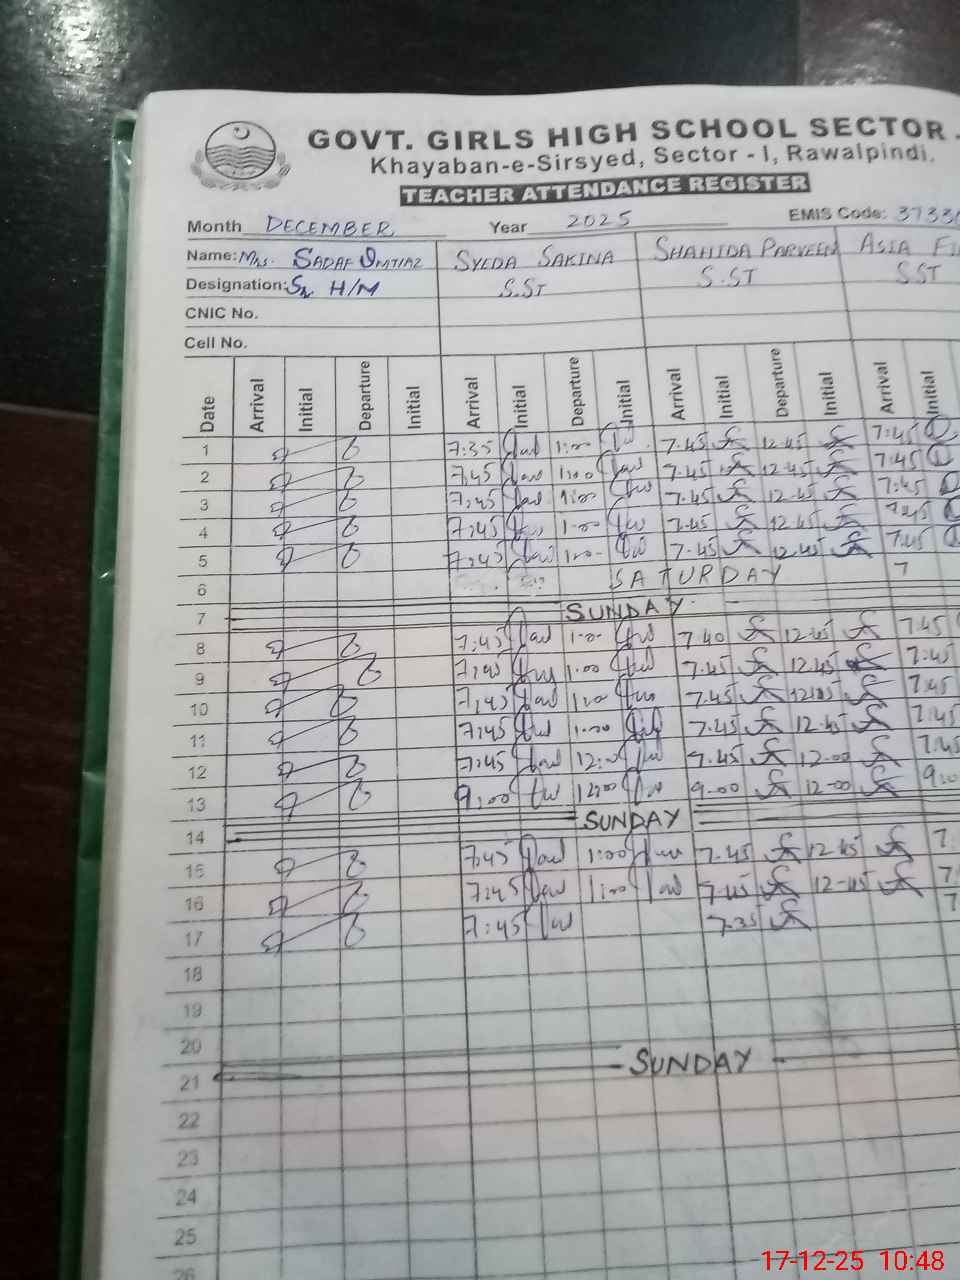 GOVT. GIRLS HIGH SCHOOL SECTOR
Khayaban-e-Sirsyed, Sector - I, Rawalpindi.
TEACHER ATTENDANCE REGISTER
Month DECEMBER Year 2025 EMIS Code: 3733
Name: Mrs. SADAF IMTIAZ SYEDA SAKINA SHAHIDA PARVEEN ASIA
Designation: Sr H/M S.ST S.ST SST
CNIC No.
Cell No.
Date Arrival Initial Departure Initial Arrival Initial Departure Initial Arrival Initial Departure Initial Arrival Initial
1 7:35 1:00 7.45 12.45 7:45
2 7:45 1:00 7.45 12.45 7:45
3 7:45 1:00 7.45 12.45 7:45
4 7:45 1:00 7.45 12.45 7:45
5 7:45 1:00 7.45 12.45 7:45
6 SATURDAY 7
7 SUNDAY
8 7:45 1:00 7.40 12.45 7:45
9 7:45 1:00 7.45 12.45 7:45
10 7:45 1:00 7.45 7:45
11 7:45 1:00 7.45 12.45 7:45
12 7:45 12:00 12.00 7:45
13 9:00 12:00 9.00 12-00
14 SUNDAY
15 7:45 1:00 7.45 12.45 7:
16 7:45 1:00 7.45 12-45 7
17 7:45 7.35 7
18
19
20
SUNDAY
21
22
23
24
25
26
17-12-25 10:48